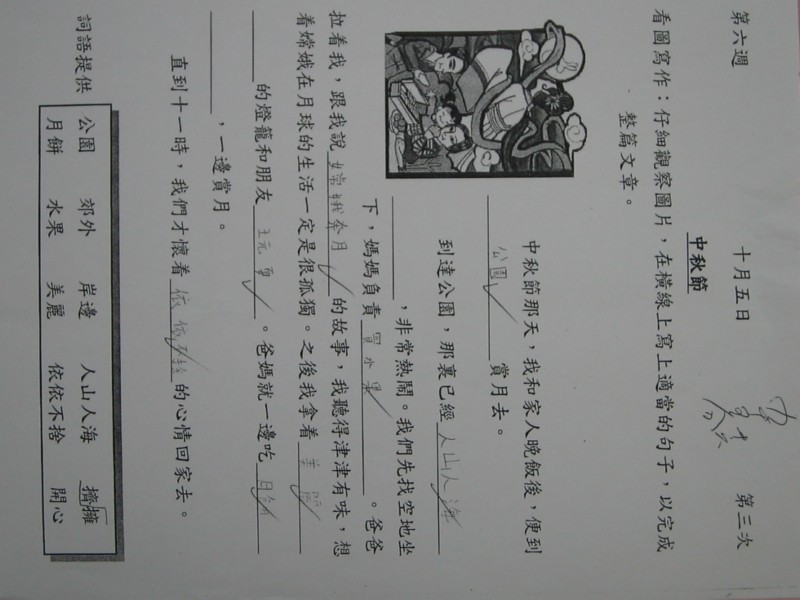 第六週 十月五日 第三次
中秋節
看圖寫作：仔細觀察圖片，在橫線上寫上適當的句子，以完成
整篇文章。
中秋節那天，我和家人晚飯後，便到
公園 賞月去。
到達公園，那裏已經人山人海
，非常熱鬧。我們先找空地坐
下，媽媽負責買水果。爸爸
拉着我，跟我說嫦娥奔月的故事，我聽得津津有味，想
着嫦娥在月球的生活一定是很孤獨。之後我拿着美麗
的燈籠和朋友 。爸媽就一邊吃月餅
，一邊賞月。
直到十一時，我們才懷着依依不捨的心情回家去。
詞語提供
公園 郊外 岸邊 人山人海 擠擁
月餅 水果 美麗 依依不捨 開心